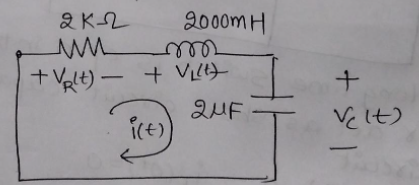 2K-Ω 2000mH
+ VR(t) - + VL(t) -
2µF + 
i(t) Vc(t)
-